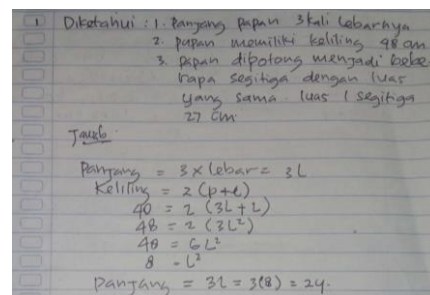 1 Diketahui : 1. Panjang papan 3 kali lebarnya
2. papan memiliki keliling 48 cm
3. papan dipotong menjadi bebe
rapa segitiga dengan luas
yang sama. luas 1 segitiga
27 cm
Jawab.
Panjang = 3 x lebar = 3L
Keliling = 2 (p+l)
40 = 2 (3L + L)
48 = 2 (3L²)
48 = 6L²
8 = L²
Panjang = 3L = 3(8) = 24.